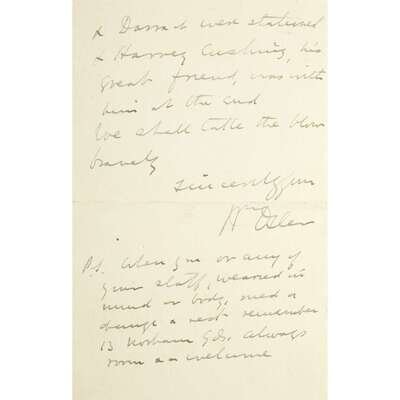 & Darrach were stationed
& Harvey Cushing, his
great friend, was with
him at the end
We shall take the blow
bravely
Sincerely yours
Wm Osler
P.S. When you or any of
your staff, wearied in
mind or body, need a
change & rest remember
13 Norham Gds. always
room & a welcome